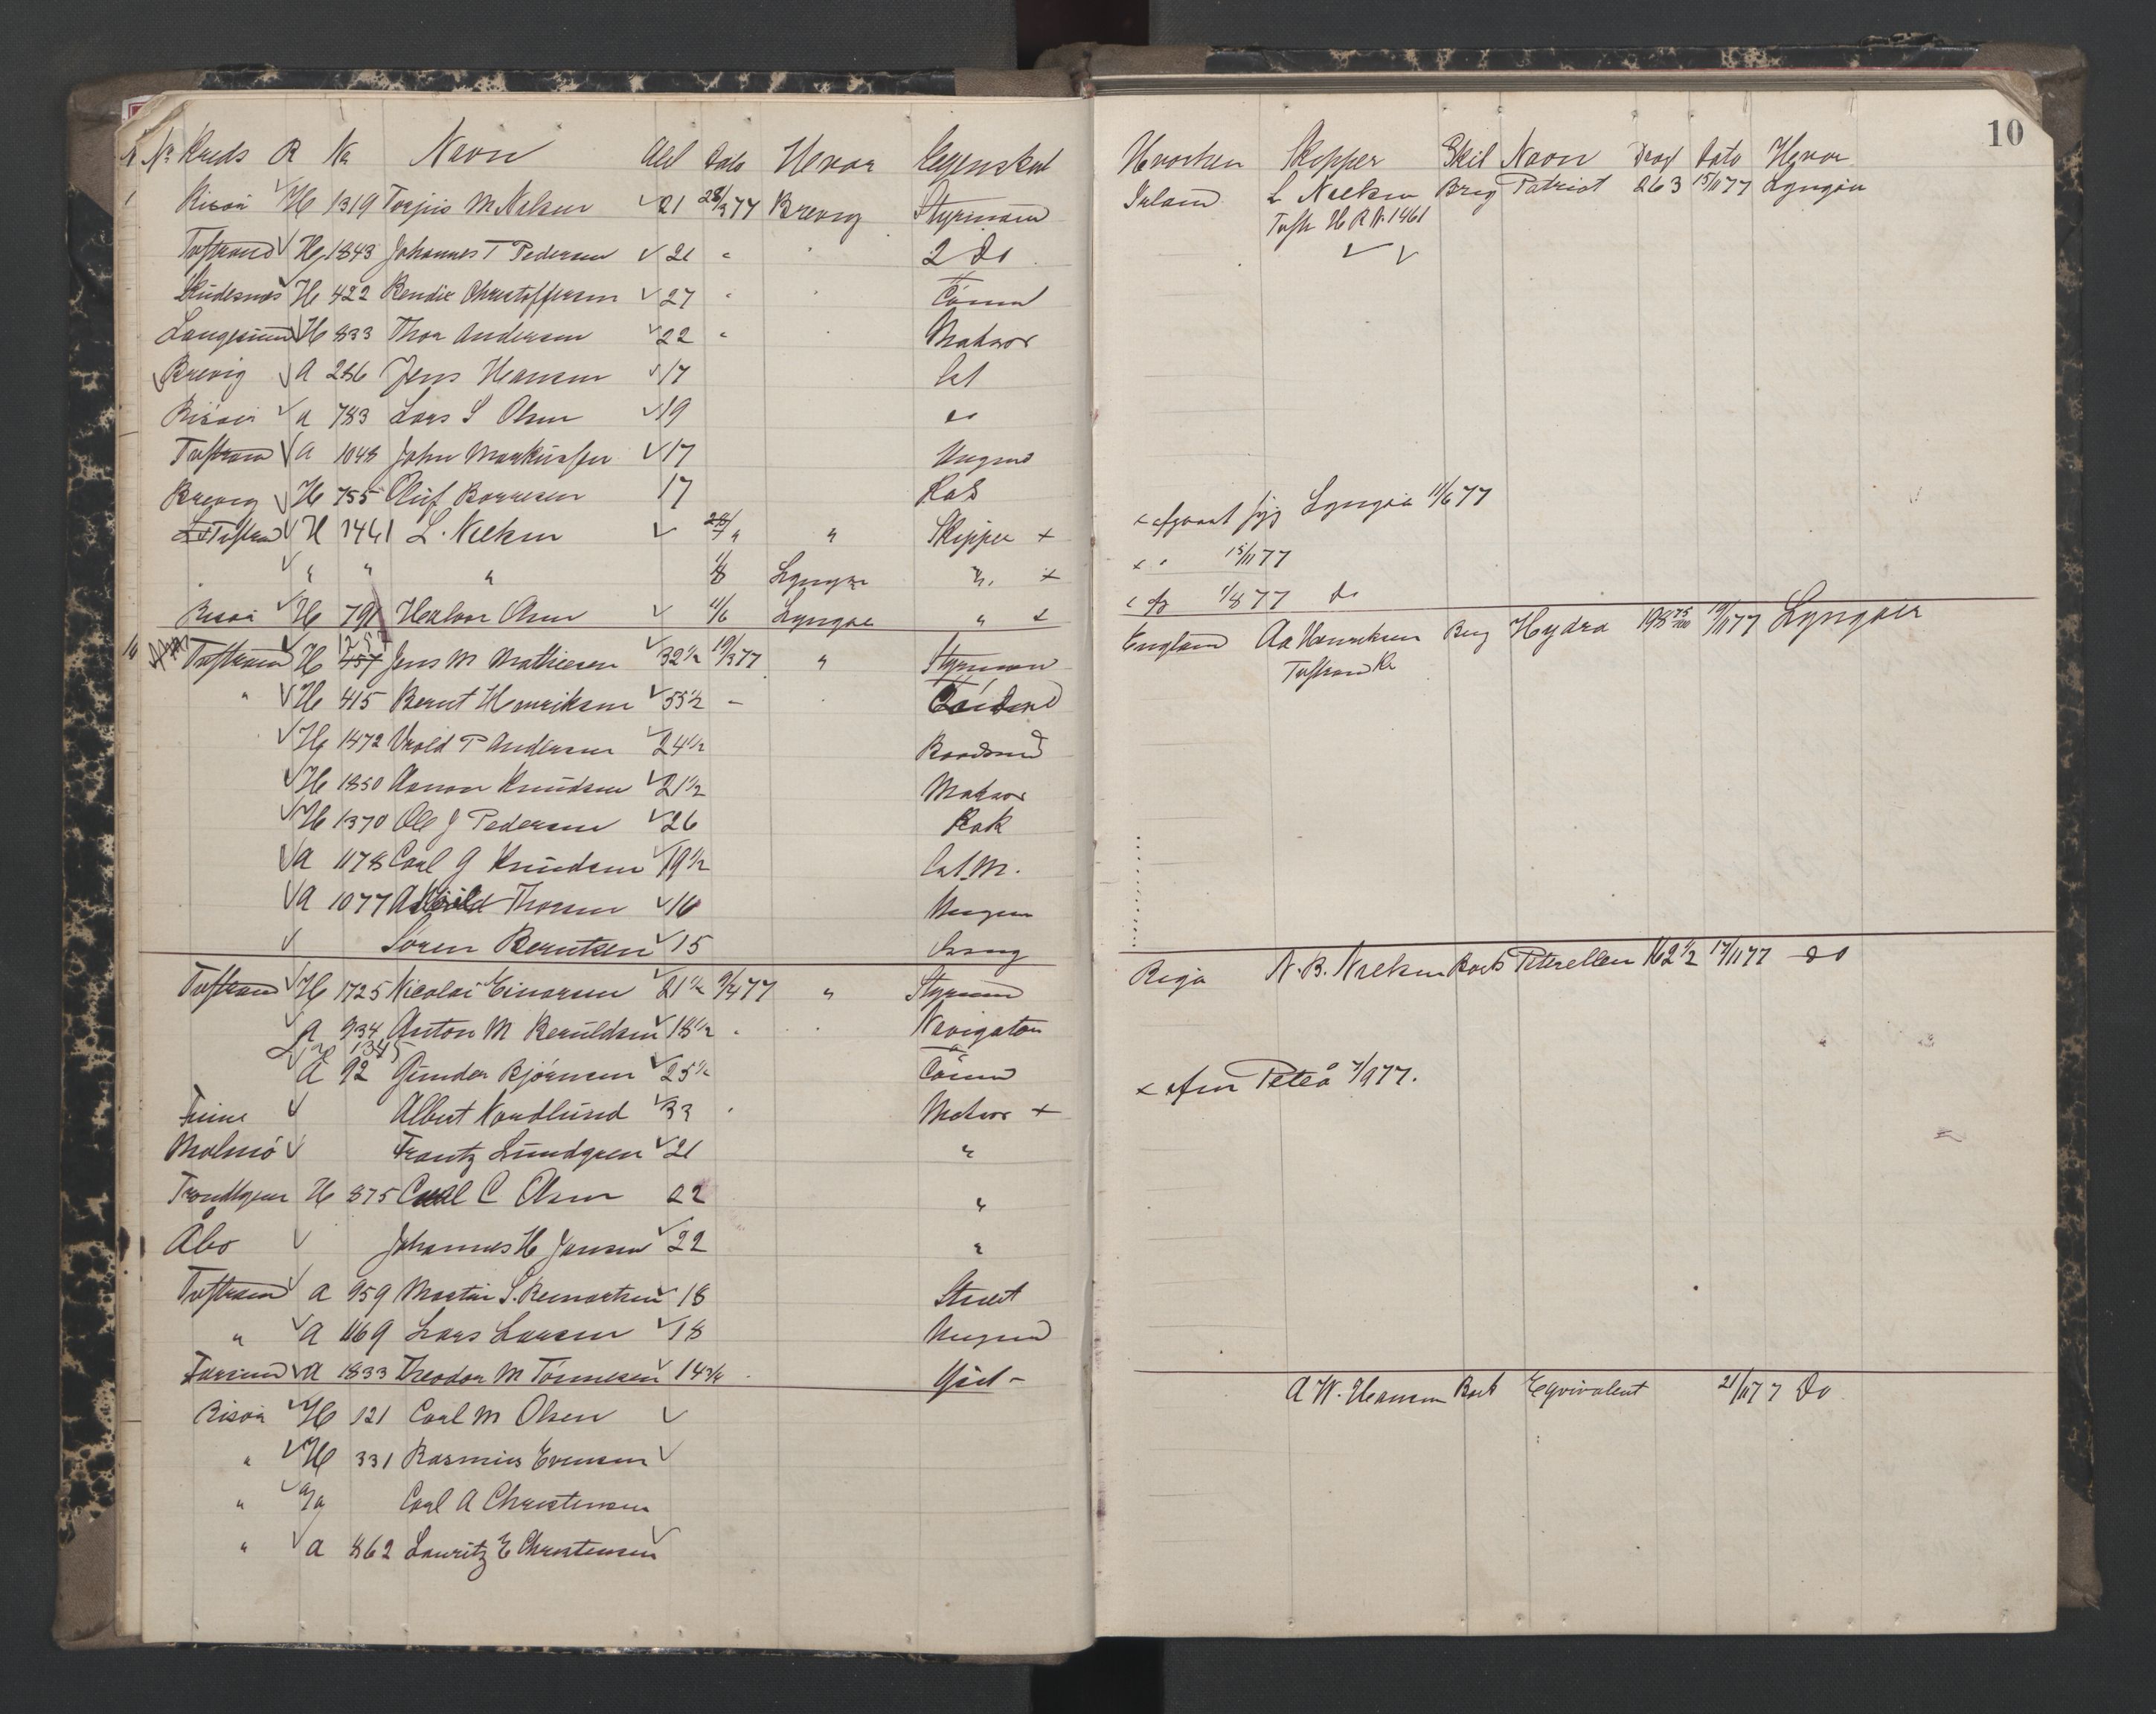 10
№ Kreds R No Navn Ald Dato Hvor Egenskab
1 Risöi H 1319 Torjus M Nilsen 21 28/3 77 Brevig Styrmand
Tvestrand H 1843 Johannes T Pedersen 21 " 2 Do
Skudesnæs H 422 Bendix Christoffersen 27 " Tömmd
Langesund H 833 Thor Andersen 22 " Matros
Brevig A 286 Jens Hansen 17
Risöi A 783 Lars S Olsen 19 do
Tvestrand A 1048 John Markussen 17 Ungmd
Brevig H 755 Oluf Borresen 17 Kok
Tvestrand H 1461 L. Nielsen " Skipper +
" " " 1/8 Lyngør " +
Risöi H 791 Halvor Olsen 11/6 Lyngør " +
Tvestrand H 457 Jens M Mathiesen 32 1/2 19/3 77 " Styrmann
" H 415 Bernt Henriksen 55 1/2 -
H 1472 Vrold P Andersen 24 1/2 Baadsmd
H 1850 Aanon Knudsen 21 1/2 Matros
H 1370 Ole J Pedersen 26 Kok
A 1178 Carl G Knudsen 19 1/2 L.M.
A 1077 Thorsen 16 Ungm
Sören Berntsen 15
Tvestrand H 1725 Nicolai Einarsen 21 1/2 9/4 77 " Styrmd
A 934 Anton M Beruldsen 18 1/2 Navigatør
1345
A 92 Gunder Björnsen 25 1/2 Tömmd
Albert Nordlund 33 Matros +
Malmö Frantz Lundgren 21 "
Trondhjem H 875 Carl C Olsen 22 "
Åbo Johannes H Jansen 22 "
Tvestrand A 959 Martin S. 18
" A 1169 Lars Larsen 18 Ungmd
Farsund A 1833 Theodor M Tönnesen 14 3/4
Risöi H 121 Carl M Olsen
" H 331 Rasmus Evensen
" Carl A Christensen
" A 862 Lauritz E Christensen
Hvorhen Skipper Skib Navn Dræg Dato Hvor
Irland L Nielsen Brig Patriot 263 15/11 77 Lyngøer
Tvestr H R № 1461
Lyngør 11/6 77
" 15/11 77
1/8 77 do
England Aa Henriksen Brig Hydra 198 75/100 19/11 77 Lyngøer
Tvestrand Kr
Riga N. B. Nielsen Bark Peterellen 162 1/2 17/11 77 do
x Afm Piteå 7/9 77.
A W. Hansen Bark Eqvivalent 21/11 77 Do